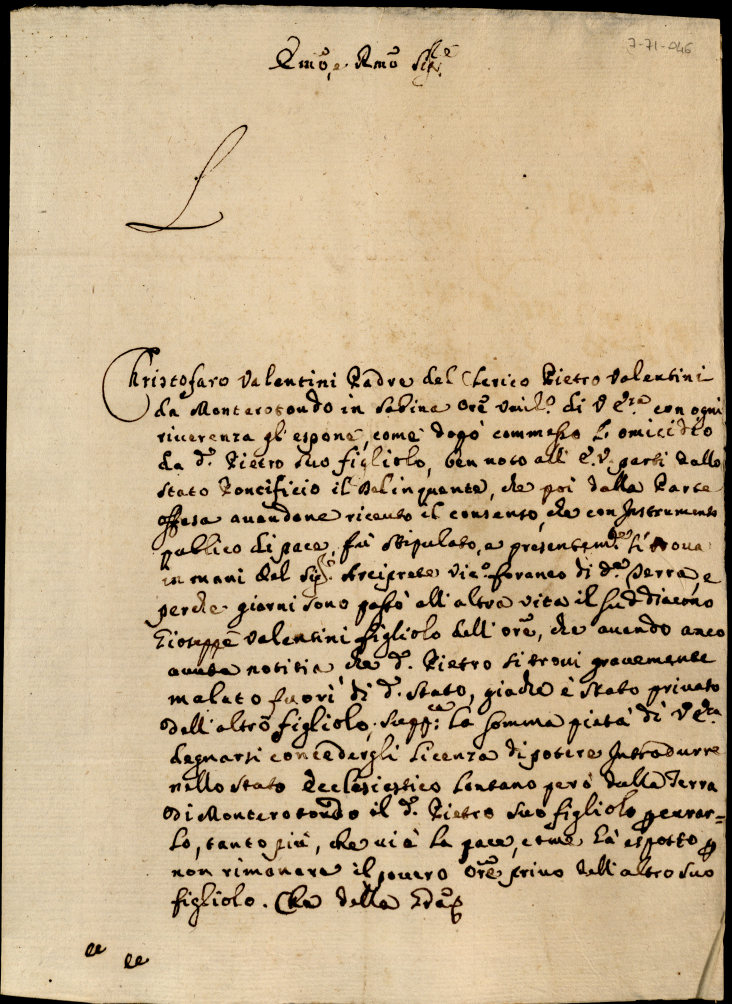 7-71-046
Emo, e Rmo Sigre
L
Christofaro Valentini Padre del Clerico Pietro Valentini
da Monterotondo in Sabina Ore Umilo di V Era con ogni
riverenza gli espone, come dopò commesso l'omicidio
da do Pietro suo figliolo, ben noto all' E.V. partì dallo
Stato Pontificio il Delinquente, che poi dalla Parte
offesa avendone riceuto il consenso, che con Instrumento
publico di pace, fù stipulato, e presentemte si trova
in mani del Sigr Arciprete Vico foraneo di da Terra, e
perche giorni sono passò all' altra vita il Suddiacono
Gioseppe Valentini figliolo dell' ore, che avendo anco
avuta notitia che do Pietro si trovi gravemente
malato fuori di do Stato, giache è stato privato
dell' altro figliolo, suppca la somma pietà di V Era
degnarsi concedergli licenza di potere Introdurre
nello stato Ecclesiestico lontano però dalla Terra
di Monterotondo il do Pietro suo figliolo p curar=
lo, tanto più, che vi è la pace, come hà esposto p
non rimanere il povero Ore privo dell' altro suo
figliolo. Che della